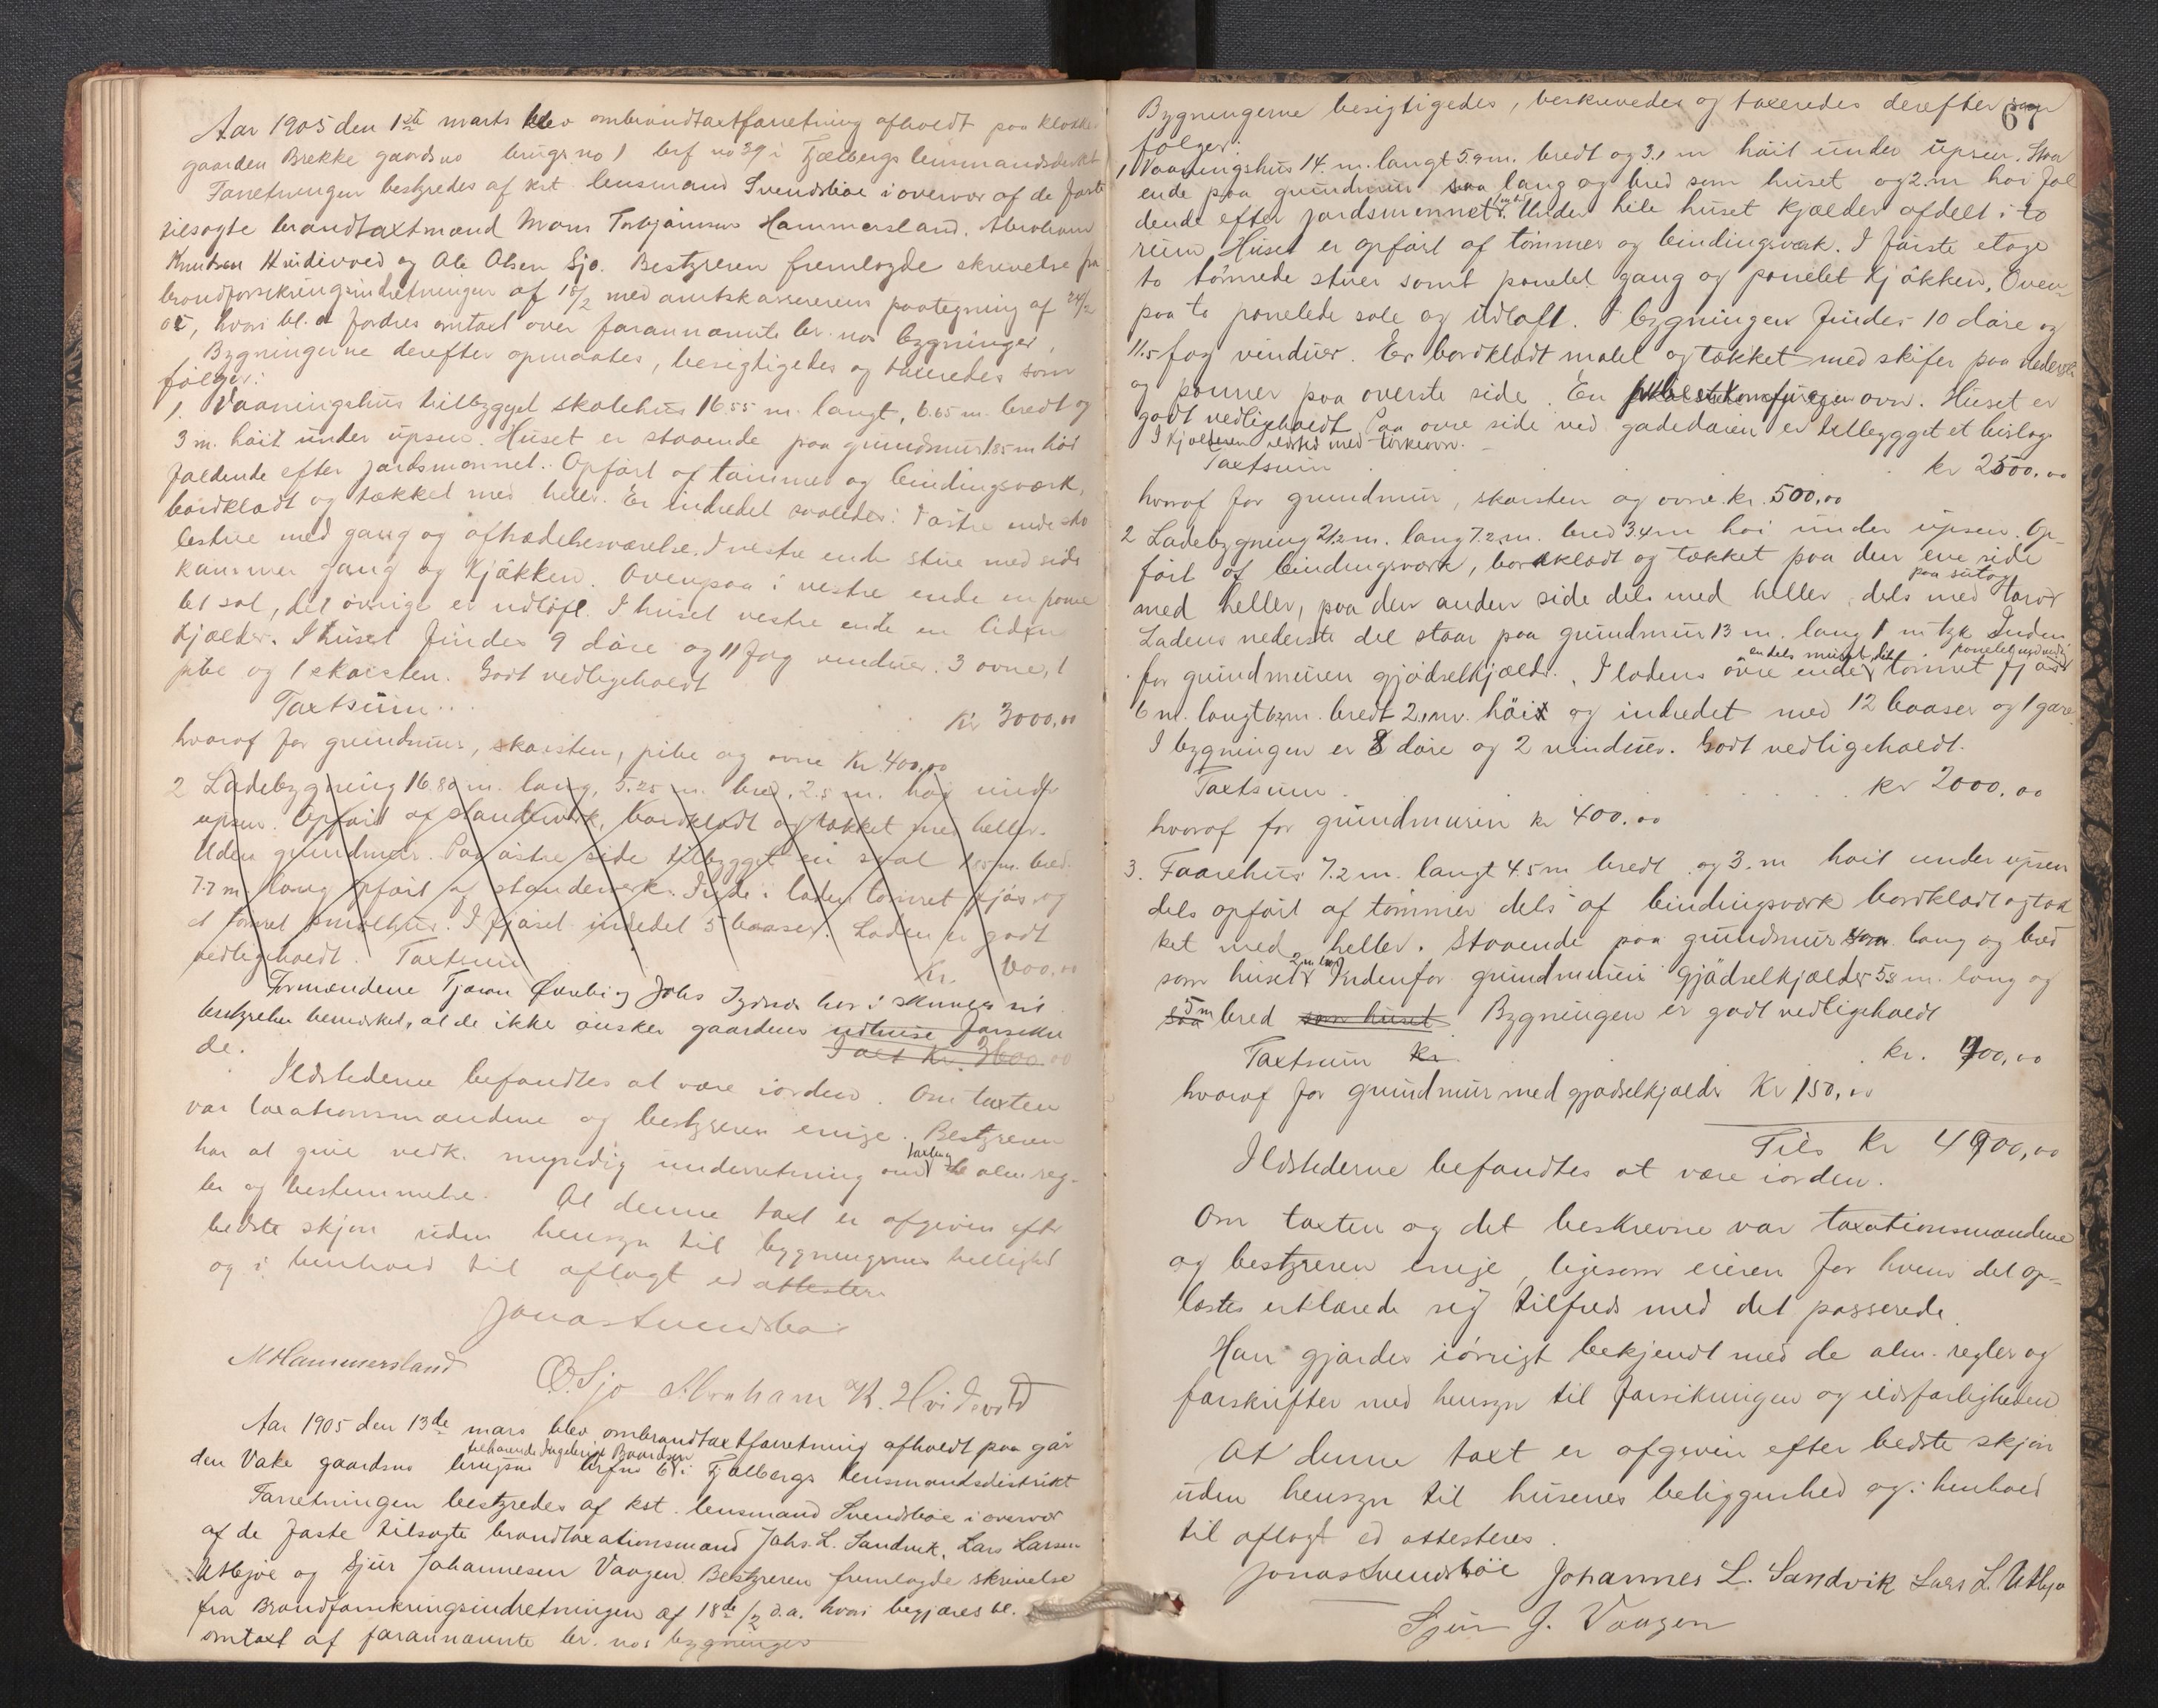 Aar 1905 den 1ste marts blev ombrandtaxtforretning afholdt paa klokker
gaarden Brekke gaardsno brugsno 1 brf no 39 i Fjælbergs lensmandsdistrikt
Forretningen bestyredes af kst. lensmand Svendsbøe i overvær af de faste
tilsagte brandtaxtmænd Mons Torbjørnsen Hammersland, Abraham
Knutsen Hvidevold og Ole Olsen Sjo. Bestyreren fremlagde skrivelse fra
brandforsikringsindretningen af 18/2 med amtskassererens paategning af 24/2
05, hvori bl. a fordres omtaxt over forannævnte br. nos bygninger.
Bygningerne derefter opmaaltes, besigtigedes og taxeredes som
følger:
1. Vaaningshus tilbygget skolehus 16.55 m. langt, 6.65 m. bredt og
3 m. høit under upsen. Huset er staaende paa grundmur 1.85 m høi
faldende efter jordsmonnet. Opført af tømmer og bindingsværk,
bordklædt og tækket med heller. Er indredet saaledes: I østre ende sko
lestue med gang og aftrædelsesværelse. I vestre ende stue med side
kammer gang og kjøkken. Ovenpaa i vestre ende en pane
let sal, det øvrige er udloft. I huset vestre ende en liden
kjælder. I huset findes 9 døre og 11 fag vinduer. 3 ovne, 1
pibe og 1 skorsten. Godt vedligeholdt
Taxtsum . . . Kr 3000,00
hvoraf for grundmur, skorsten, pibe og ovne Kr. 400,00
2 Ladebygning 16.80 m. lang, 5.25 m. bred, 2.5 m. høi under
upsen. Opført af standerværk, bordklædt og tækket med heller.
Uden grundmur. Paa østre side tilbygget en sval 1.85 m. bred.
7.7 m. lang opført af standerverk. Inde i laden tømret fjøs og
et tømret smalehus. I fjøset indredet 5 baaser. Laden er godt
vedligeholdt. Taxtsum Kr. 600,00
Formændene Tjøran Øvrebø og Johs har i skrivelse til
bestyrelsen bemærket, at de ikke ønsker gaardens udhuse forsikre
de. I alt Kr. 3600.00
Ildstederne befandtes at være iorden. Om taxten
var taxationsmændene og bestyreren enige. Bestyreren
har at give vedk. myndig underretning om taxten de alm. reg-
ler og bestemmelse. At denne taxt er afgiven efter
bedste skjøn uden hensyn til bygningernes beliggenhed
og i henhold til aflagt ed attesteres
Jonas Svendsbøe
M Hammersland O. O. Sjo Abraham K. Hvidevold
Aar 1905 den 13de mars blev ombrandtaxtforretning afholdt paa gaar
tilhørende Ingebrigt Baardsen
den Vake gaardsno brugsno brfno 6 i Fjælbergs lensmandsdistrikt
Forretningen bestyredes af kst. lensmand Svendsbøe i overvær
af de faste tilsagte brandtaxationsmænd Johs. L. Sandvik, Lars Larsen
Utbjoe og Sjur Johannesen Vaagen. Bestyreren fremlagde skrivelse
fra Brandforsikringsindretningen af 18de/2 d.a. hvori begjæres bl. a.
omtaxt af forannævnte br. nos bygninger
67
Bygningerne besigtigedes, beskrevedes og taxeredes derefter som
følger:
1 Vaaningshus 14. m. langt 5.9 m. bredt og 3.1 m høit under upsen. Staa
ende paa grundmur saa lang og bred som huset og 2. m høi fal
dende efter jordsmonnet. Under hele huset kjælder afdelt i to
rum. Huset er opført af tømmer og bindingsværk. I første etage
to tømrede stuer samt panelet gang og panelet kjøkken. Oven-
paa to panelede sale og udloft. I bygningen findes 10 døre og
11.5 fag vinduer. Er bordklædt malet og tækket med skifer paa nederste
og panner paa øverste side. En skorsten komfur og en ovn. Huset er
godt vedligeholdt. Paa øvre side ved gadedøren er tilbygget et bislag
I kjælderen ildsted med tørkeovn. -
Taxtsum . . . . kr 2500.00
hvoraf for grundmur, skorsten og ovne. kr. 500,00
2 Ladebygning 21.2 m. lang 7.2 m. bred 3.4 m høi under upsen. Op-
ført af bindingsværk, bordklædt og tækket paa den ene side
paa sutag
med heller, paa den anden side dels med heller, dels med torv
Ladens nederste del staar paa grundmur 13 m. lang 1 m tyk Inden
for grundmuren gjødselkjælder. I ladens øvre ende tømret fjøs
6 m. langt m. bredt 2.1 m. høit og indredet med 12 baaser og 1 gare.
I bygningen er 8 døre og 2 vinduer. Godt vedligeholdt.
Taxtsum . . . . . kr 2000.00
hvoraf for grundmuren kr 400.00
3. Faarehus 7.2 m. langt 4.5 m bredt og 3. m høit under upsen
dels opført af tømmer dels af bindingsværk bordklædt og tæk
ket med heller. Staaende paa grundmur saa lang og bred
2 m høi
som huset. Indenfor grundmuren gjødselkjælder 5.8 m. lang og
saa 5 m bred som huset Bygningen er godt vedligeholdt
Taxtsum kr . . . kr. 400,00
hvoraf for grundmur med gjødselkjælder Kr 150,00
Tils Kr 4900,00
Ildstederne befandtes at være iorden.
Om taxten og det beskrevne var taxationsmændene
og bestyreren enige, ligesom eieren for hvem det op-
læstes erklærede sig tilfreds med det passerede.
Han gjordes iøvrigt bekjendt med de alm. regler og
forskrifter med hensyn til forsikringen og ildsfarligheden
At denne taxt er afgiven efter bedste skjøn
uden hensyn til husenes beliggenhed og i henhold
til aflagt ed attesteres.
Jonas Svendsbøe Johannes L. Sandvik Lars L. Utbjo
Sjur J. Vaagen